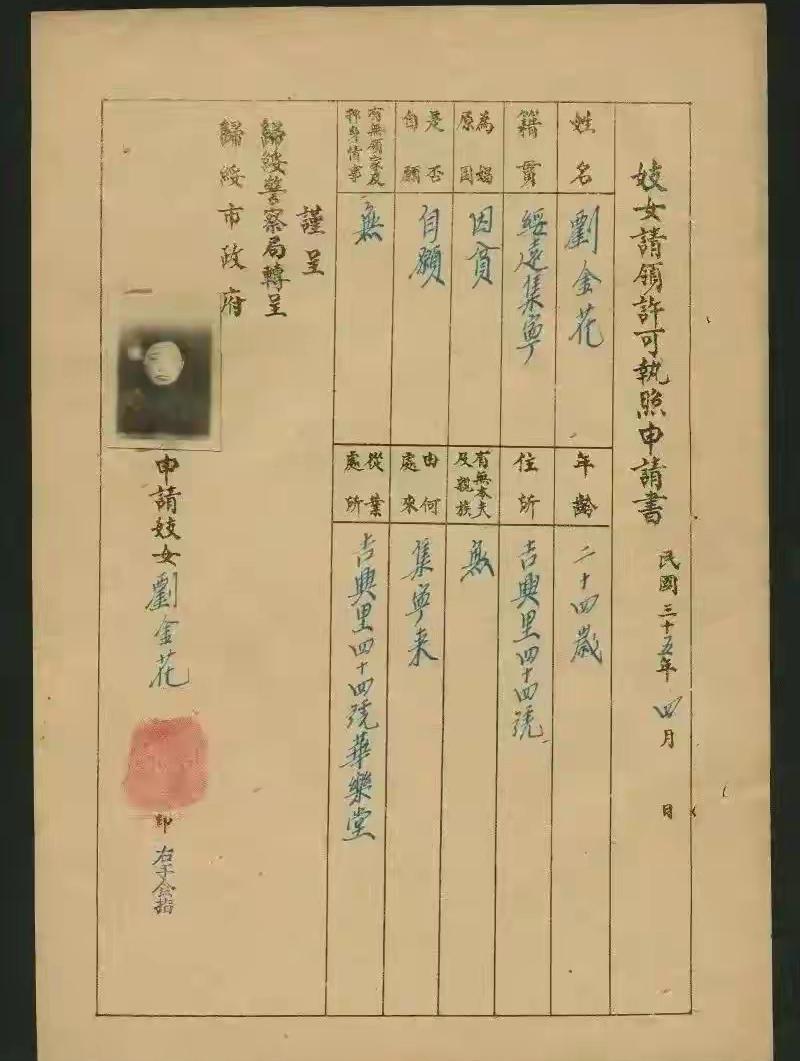 妓女請領許可執照申請書
民國三十五年四月　日
姓名
劉金花
年齡
二十四歲
籍貫
綏遠集寧
住所
吉興里四十四號
為娼原因
因貧
有無本夫及親族
無
是否自願
自願
由何處來
集寧来
有無領家及押身情事
無
從業處所
吉興里四十四號華樂堂
謹呈
歸綏警察局轉呈
歸綏市政府
申請妓女劉金花
印
右手食指